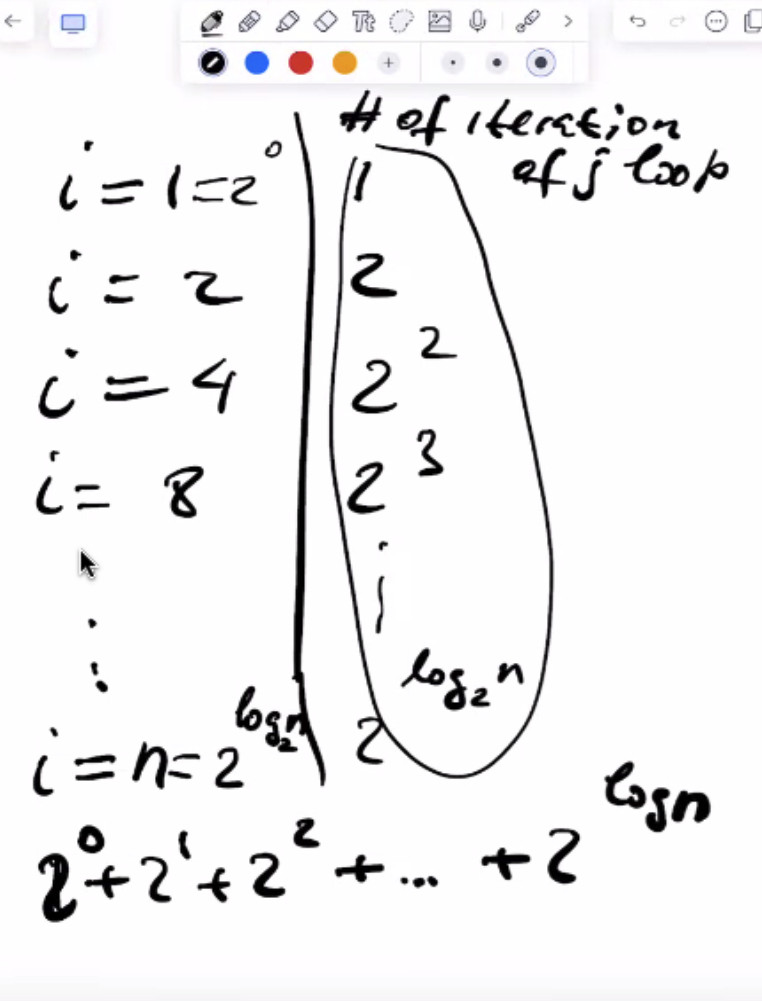 # of iteration
of j loop
i = 1 = 2^0 | 1
i = 2 | 2
i = 4 | 2^2
i = 8 | 2^3
⋮ | ⋮
i = n = 2^log₂n | 2^log₂n
2^0 + 2^1 + 2^2 + ... + 2^logn